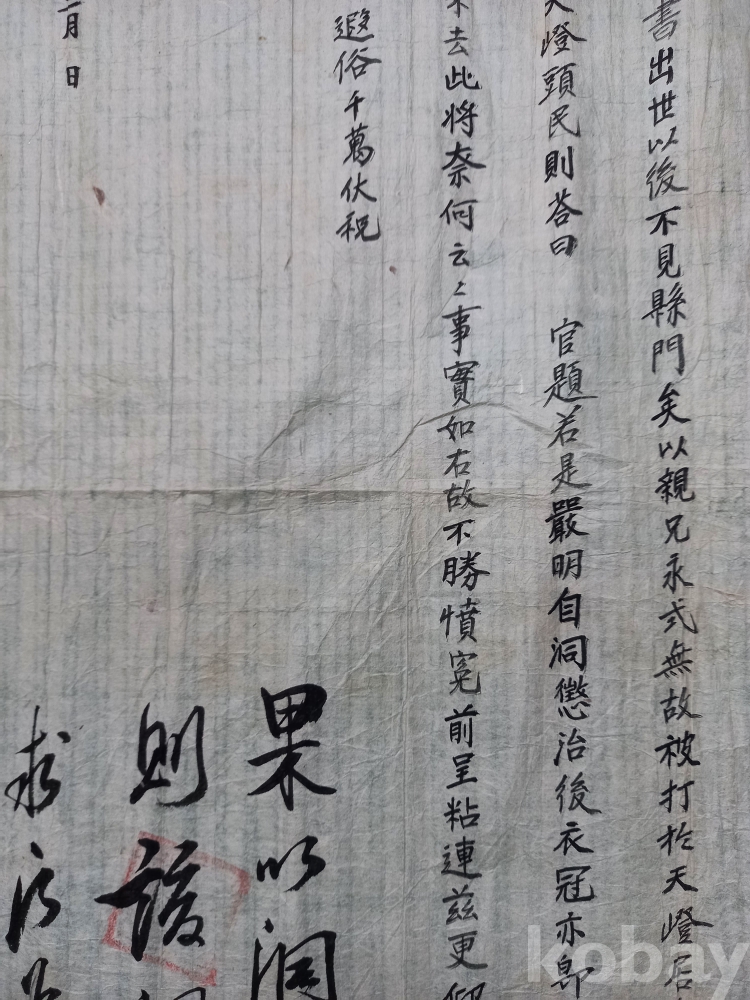 書出世以後不見縣門矣以親兄永弍無故被打於天嶝居
嶝頭民則答曰 官題若是嚴明自洞懲治後衣冠亦卽
去此將奈何云々事實如右故不勝憤寃前呈粘連玆更仰
遐俗千萬伏祝
月 日
果以洞
則該
kobay